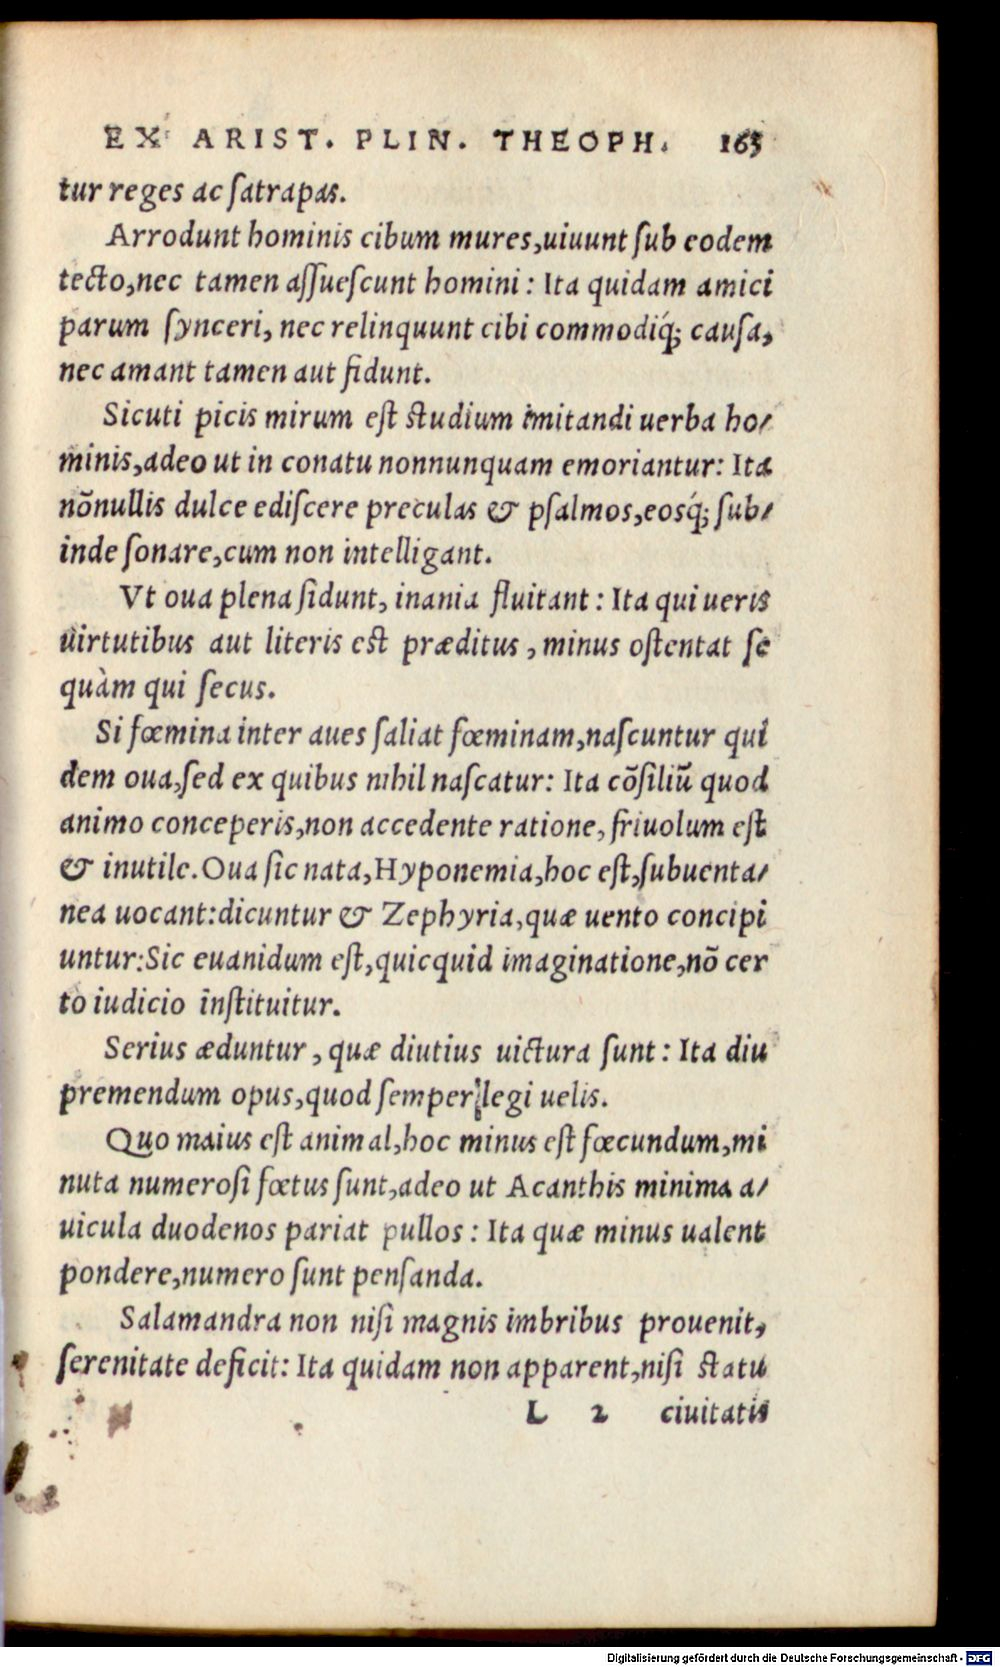 EX ARIST. PLIN. THEOPH. 163
tur reges ac ſatrapas.
Arrodunt hominis cibum mures,uiuunt ſub eodem
tecto,nec tamen aſſueſcunt homini: Ita quidam amici
parum ſynceri, nec relinquunt cibi commodiq́; cauſa,
nec amant tamen aut fidunt.
Sicuti picis mirum eſt ſtudium imitandi uerba ho/
minis,adeo ut in conatu nonnunquam emoriantur: Ita
nõnullis dulce ediſcere preculas & pſalmos,eosq́; ſub/
inde ſonare,cum non intelligant.
Vt oua plena ſidunt, inania fluitant: Ita qui ueris
uirtutibus aut literis eſt præditus, minus oſtentat ſe
quàm qui ſecus.
Si fœmina inter aues ſaliat fœminam,naſcuntur qui
dem oua,ſed ex quibus nihil naſcatur: Ita cõſiliũ quod
animo conceperis,non accedente ratione, friuolum eſt
& inutile. Oua ſic nata, Hyponemia,hoc eſt,ſubuenta/
nea uocant:dicuntur & Zephyria,quæ uento concipi
untur:Sic euanidum eſt,quicquid imaginatione,nõ cer
to iudicio inſtituitur.
Serius æduntur, quæ diutius uictura ſunt: Ita diu
premendum opus,quod ſemper legi uelis.
Quo maius eſt animal,hoc minus eſt fœcundum,mi
nuta numeroſi fœtus ſunt,adeo ut Acanthis minima a/
uicula duodenos pariat pullos: Ita quæ minus ualent
pondere,numero ſunt penſanda.
Salamandra non niſi magnis imbribus prouenit,
ſerenitate deficit: Ita quidam non apparent,niſi ſtatu
L 2 ciuitatis
Digitalisierung gefördert durch die Deutsche Forschungsgemeinschaft - DFG